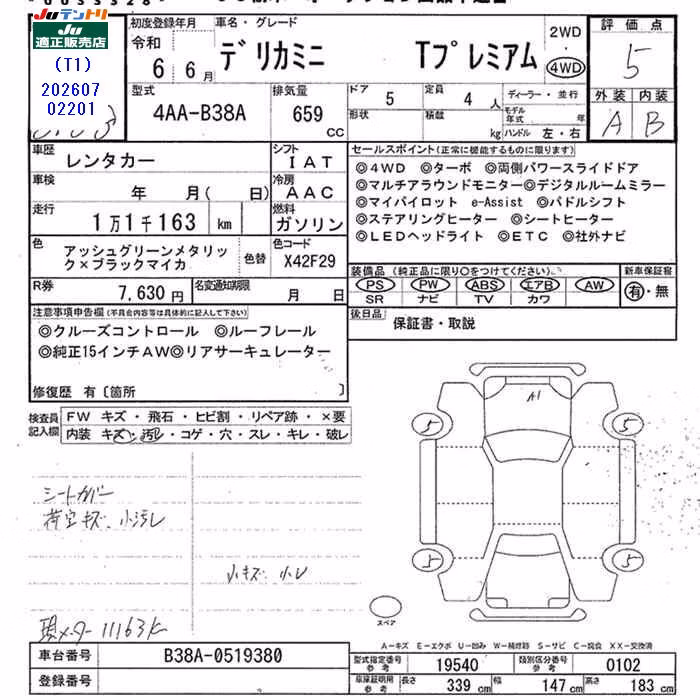 JUテントリ
JU適正販売店
(T1)
202607
02201
初度登録年月
令和
6 6月
車名・グレード
デリカミニ Tプレミアム
2WD
4WD
評価点
5
型式
4AA-B38A
排気量
659
CC
ドア
5
定員
4 人
ディーラー・並行
形状
積載
kg
モデル年式
年
ハンドル 左・右
外装 内装
A B
車歴
レンタカー
シフト
IAT
車検
年 月( 日)
冷房
AAC
走行
1万1千163 km
燃料
ガソリン
色
アッシュグリーンメタリック×ブラックマイカ
色替
色コード
X42F29
R券
7,630 円
名変通知期限
月 日
セールスポイント(正常に機能するものに限ります)
◎4WD ◎ターボ ◎両側パワースライドドア
◎マルチアラウンドモニター◎デジタルルームミラー
◎マイパイロット e-Assist ◎パドルシフト
◎ステアリングヒーター ◎シートヒーター
◎LEDヘッドライト ◎ETC ◎社外ナビ
装備品(純正品に限り○をつけてください)
PS PW ABS エアB AW
SR ナビ TV カワ
新車保証書
有・無
後日品
保証書・取説
注意事項申告欄(不具合内容等は具体的に記入して下さい)
◎クルーズコントロール ◎ルーフレール
◎純正15インチAW◎リアサーキュレーター
修復歴 有〔箇所 〕
検査員記入欄
FW キズ・飛石・ヒビ割・リペア跡・×要
内装 キズ・汚レ・コゲ・穴・スレ・キレ・破レ
シートカバー
荷室キズ 小汚レ
小キズ 小レ
現メーター 11163k
A1
5
5
5
5
スペア
A－キズ E－エクボ U－凹み W－補修跡 S－サビ C－腐食 XX－交換済
車台番号
B38A-0519380
登録番号
型式指定番号
参考
19540
類別区分番号
参考
0102
車庫証明用
参考
長さ 339 cm 幅 147 cm 高さ 183 cm